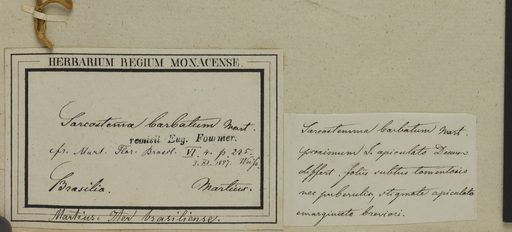 HERBARIUM REGIUM MONACENSE.
Sarcostema barbatum Mart.
remisit Eug. Fournier.
cfr. Mart. Flor. Brasil. VI. 4. p. 235.
3. XI. 1887.
Brasilia. Martius.
Martius: Iter brasiliense.
Sarcostemma barbatum Mart
proximum S. apiculato Decne
differt. foliis subtus tomentosis
nec puberulis, stigmate apiculato
emarginato breviori.